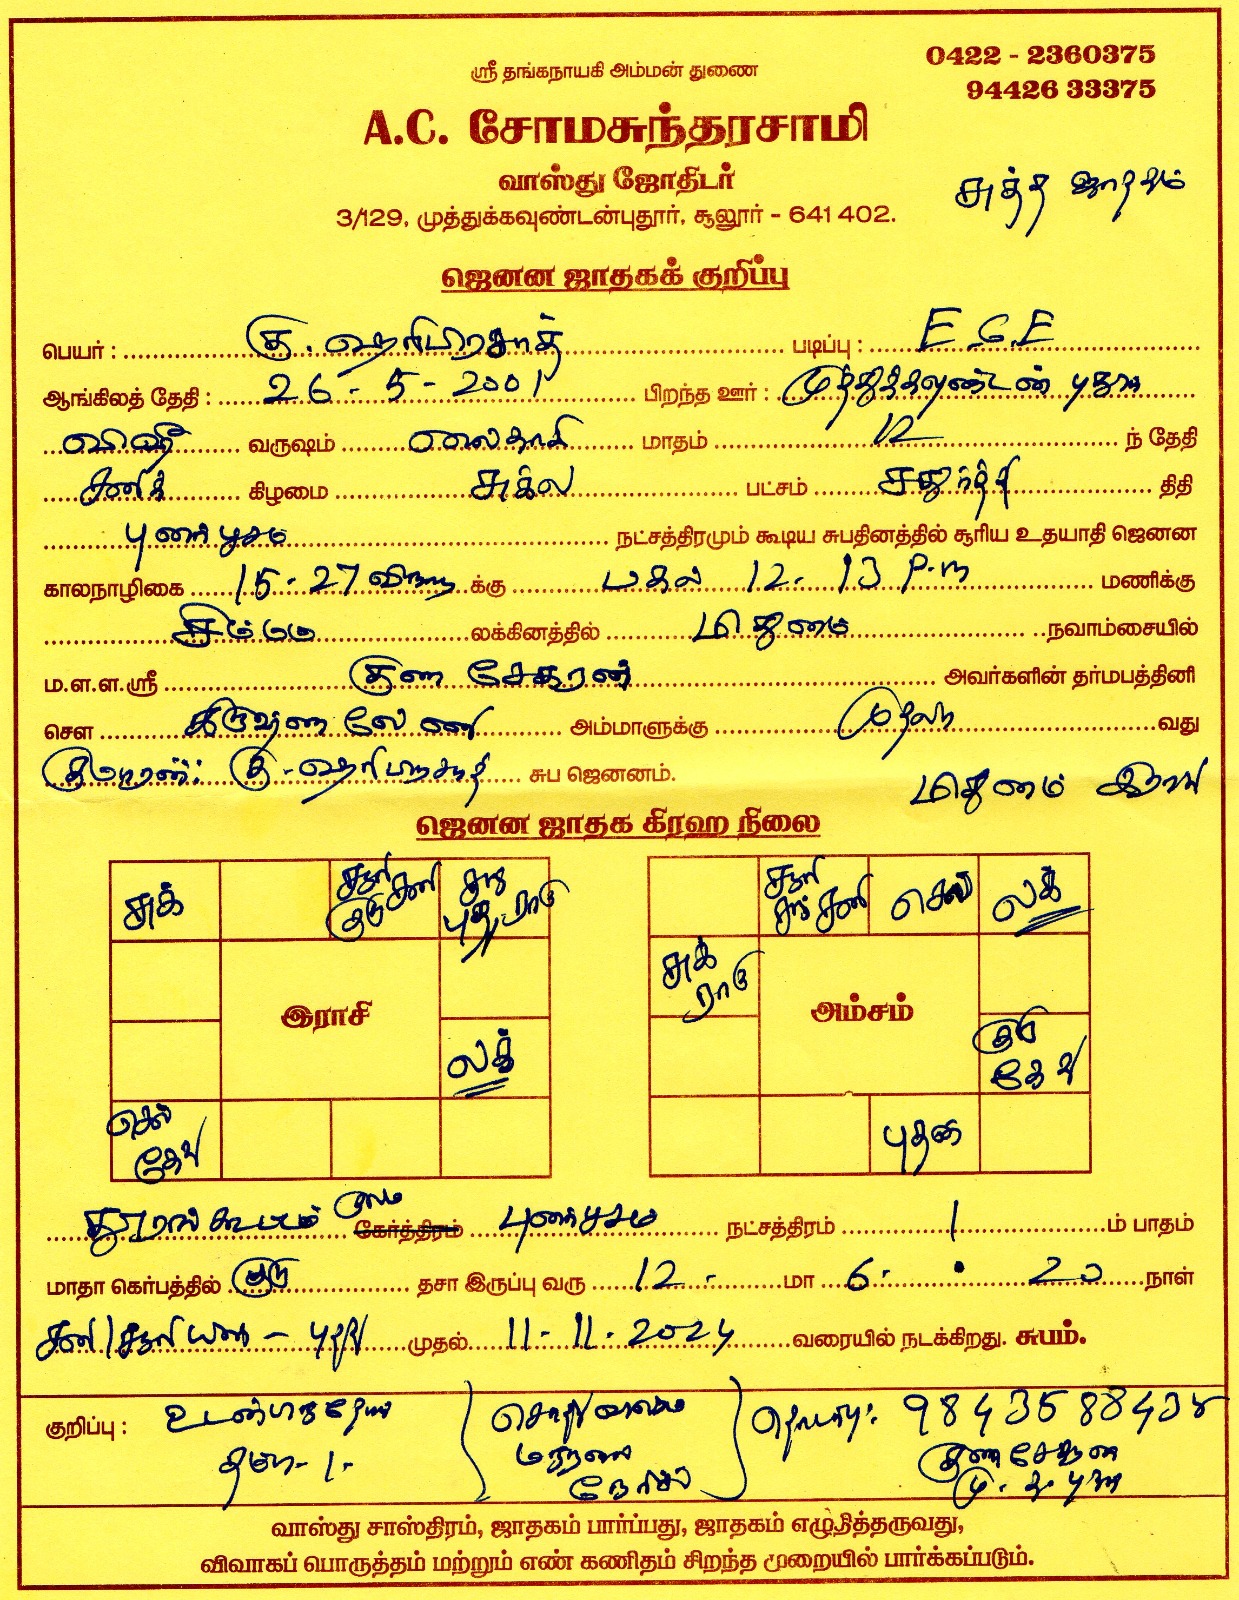 0422 - 2360375
ஸ்ரீ தங்கநாயகி அம்மன் துணை
94426 33375
A.C. சோமசுந்தரசாமி
வாஸ்து ஜோதிடர்
சுத்த ஜாதகம்
3/129, முத்துக்கவுண்டன்புதூர், சூலூர் - 641 402.
ஜெனன ஜாதகக் குறிப்பு
பெயர் : கு. ஹரிபிரசாத் படிப்பு : E C E
ஆங்கிலத் தேதி : 26 - 5 - 2001 பிறந்த ஊர் : முத்துக்கவுண்டன் புதூர்
வருஷம் வைகாசி மாதம் 12 ந் தேதி
சனிக் கிழமை சுக்ல பட்சம் சதுர்த்தி திதி
புனர்பூசம் நட்சத்திரமும் கூடிய சுபதினத்தில் சூரிய உதயாதி ஜெனன
காலநாழிகை 15-27 க்கு பகல் 12-13 P.m மணிக்கு
சிம்மம் லக்கினத்தில் மிதுனம் நவாம்சையில்
ம.ள.ள.ஸ்ரீ குணசேகரன் அவர்களின் தர்மபத்தினி
சௌ கிருஷ்ணவேணி அம்மாளுக்கு முதலா வது
குமாரன்: கு. ஹரிபிரசாத் சுப ஜெனனம்.
மிதுனம் இராசி
ஜெனன ஜாதக கிரஹ நிலை
சுக் சூரி குரு சனி சந் புத ராகு
இராசி
லக்
செவ் கேது
சூரி சந் சனி செவ் லக்
சுக் ராகு
அம்சம்
குரு கேது
புதன்
கோர்த்திரம் புனர்பூசம் நட்சத்திரம் 1 ம் பாதம்
மாதா கெர்பத்தில் குரு தசா இருப்பு வரு 12 - மா 6 - 20 நாள்
முதல் 11-11-2024 வரையில் நடக்கிறது. சுபம்.
குறிப்பு :
98435 88438
குணசேகரன்
மு. க. புதூர்
வாஸ்து சாஸ்திரம், ஜாதகம் பார்ப்பது, ஜாதகம் எழுதித்தருவது,
விவாகப் பொருத்தம் மற்றும் எண் கணிதம் சிறந்த முறையில் பார்க்கப்படும்.